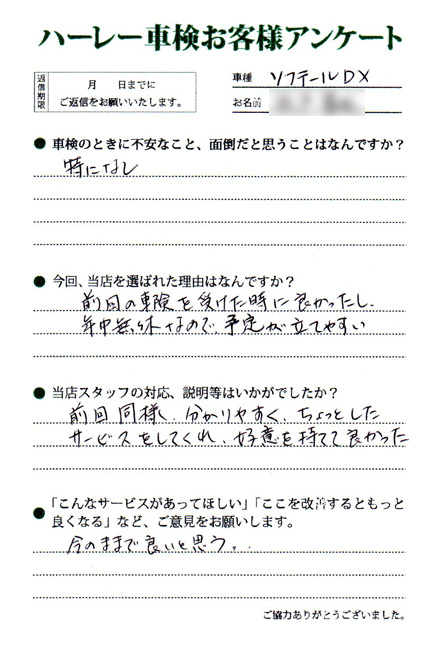 ハーレー車検お客様アンケート
返信期限
月　日までに
ご返信をお願いいたします。
車種 ソフテールDX
お名前
● 車検のときに不安なこと、面倒だと思うことはなんですか？
特になし
● 今回、当店を選ばれた理由はなんですか？
前回の車険を受けた時に良かったし、
年中無休なので、予定が立てやすい
● 当店スタッフの対応、説明等はいかがでしたか？
前回同様し、分かりやすく、ちょっとした
サービスをしてくれ、好意を持てて良かった
● 「こんなサービスがあってほしい」「ここを改善するともっと
良くなる」など、ご意見をお願いします。
今のままで良いと思う。
ご協力ありがとうございました。